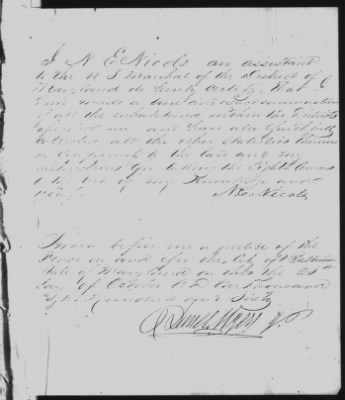 I N E Nicols an assistant
to the U S Marshal of the District of
Maryland do hereby certify that I
have made a true and
of all the inhabitants within the District
assigned me, and have also faithfully
collected all the other Statistics therein
in to the law and
instructions for taking the Eighth Census
to the best of my Knowledge and
N E Nicols
Sworn before me a Justice of the
Peace in and for the City of Baltimore
State of Maryland on this the
day of October A D One Thousand
Eight Hundred and Sixty
Myers J P